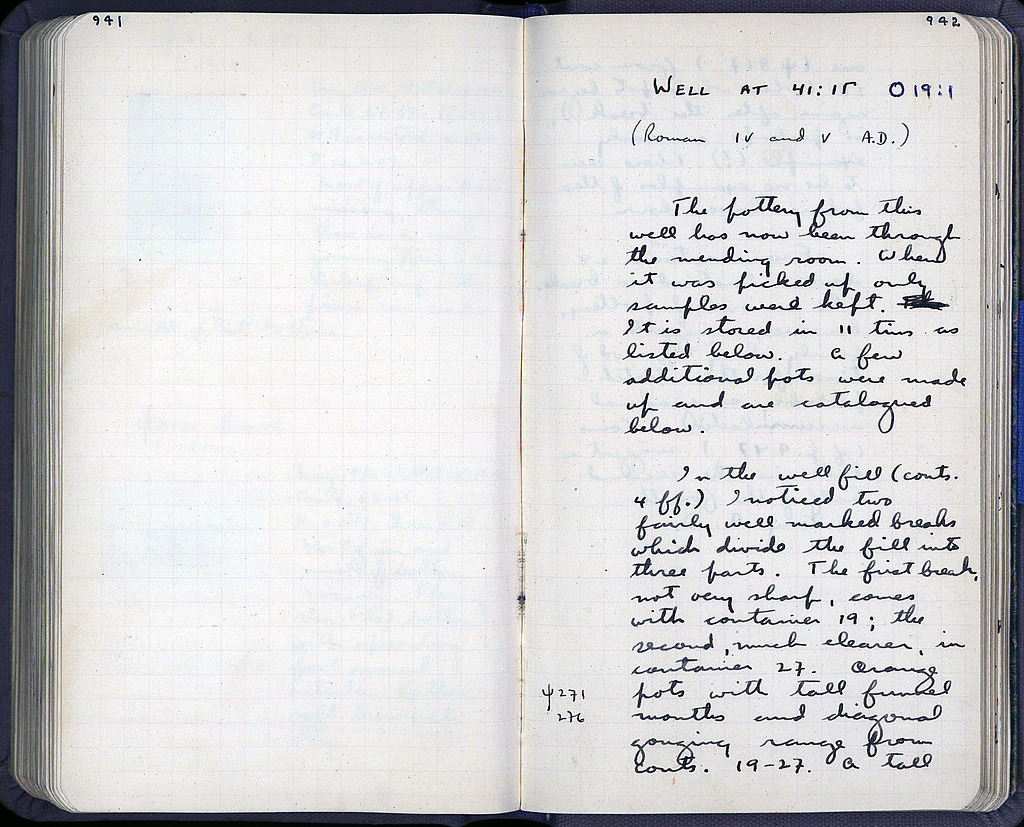 941
942
WELL AT 41:15 O 19:1
(Roman IV and V A.D.)
The pottery from this
well has now been through
the mending room. When
it was picked up only
samples were kept.
It is stored in 11 tins as
listed below. A few
additional pots were made
up and are catalogued
below.
In the well fill (conts.
4 ff.) I noticed two
fairly well marked breaks
which divide the fill into
three parts. The first break,
not very sharp, comes
with container 19; the
second, much clearer, in
container 27. Orange
ψ271 pots with tall funnel
276 mouths and diagonal
gouging range from
conts. 19-27. A tall